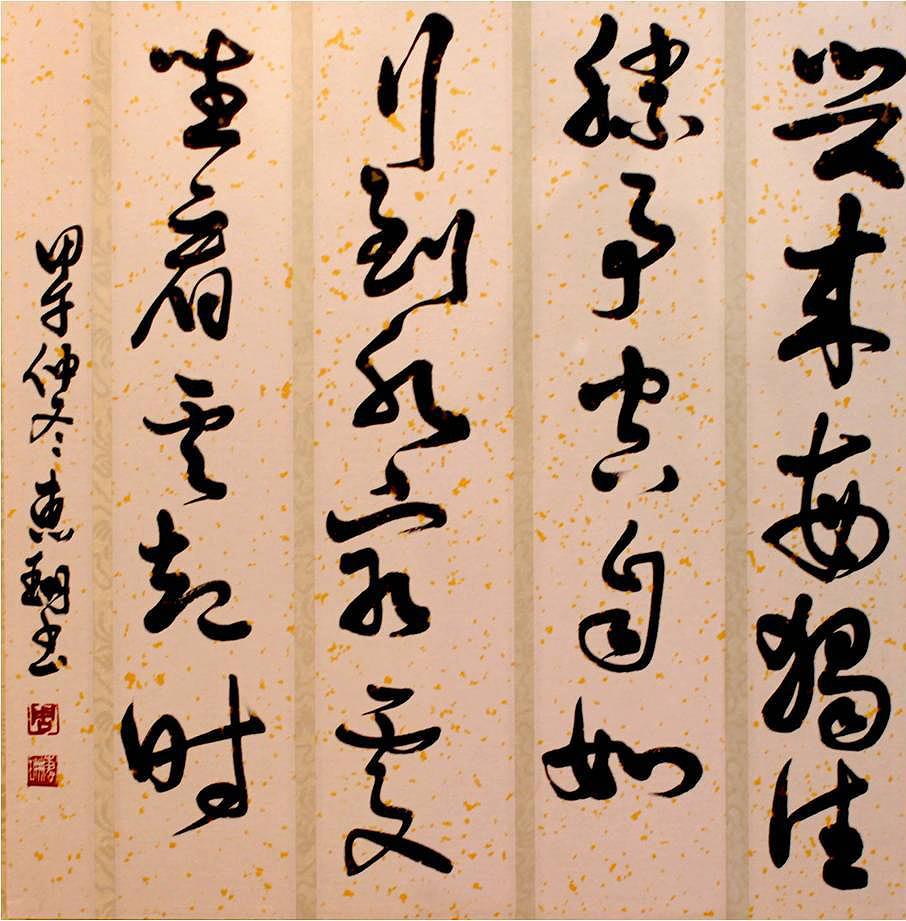 兴来每獨往
勝事空自知
行到水窮處
坐看云起时
甲午仲冬惠书